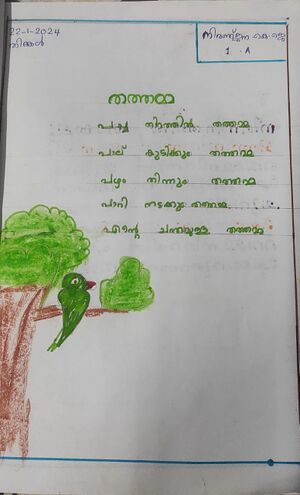 22-1-2024
തിങ്കൾ
നിരഞ്ജന കെ.ജെ
1 A
തത്തമ്മ
പച്ച നിറത്തിൻ തത്തമ്മ
പാല് കുടിക്കും തത്തമ്മ
പഴം തിന്നും തത്തമ്മ
പാറി നടക്കും തത്തമ്മ
എന്റെ ചന്തമുള്ള തത്തമ്മ